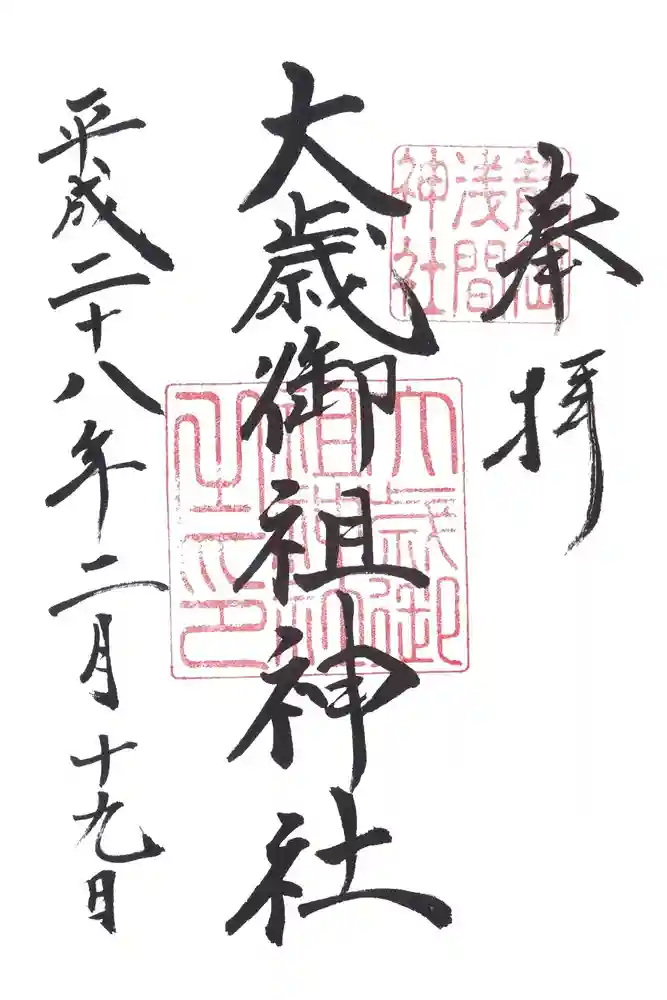 奉拝
静岡
浅間
神社
大歳御祖神社
大歳御
祖神社
之印
平成二十八年二月十九日